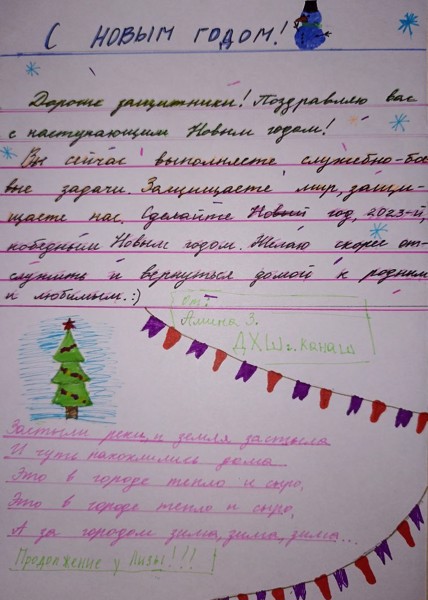 С НОВЫМ ГОДОМ!
Дорогие защитники! Поздравляю вас
с наступающим Новым годом!
Вы сейчас выполняете служебно-бое
вые задачи. Защищаете мир, защи-
щаете нас. Сделайте Новый год, 2023-й,
победным Новым годом. Желаю скорее от-
служить и вернуться домой к родным
и любимым. :)
от:
Амина З.
ДХШ г. Канаш
Застыли реки и земля застыла
И чуть нахохлились дома
Это в городе тепло и сыро,
Это в городе тепло и сыро,
А за городом зима, зима, зима...
Продолжение у Лизы!!!